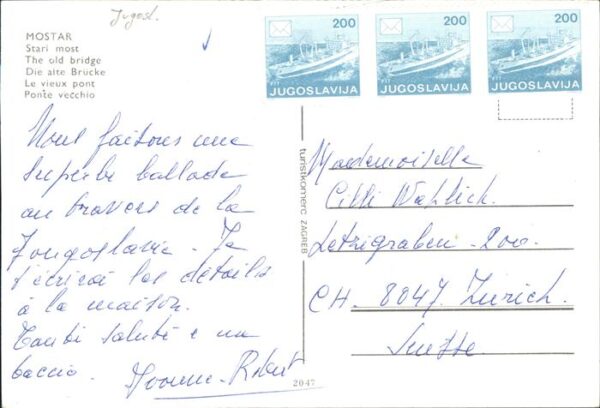 Jugosl.
MOSTAR
Stari most
The old bridge
Die alte Brücke
Le vieux pont
Ponte vecchio
200
PTT
JUGOSLAVIJA
200
PTT
JUGOSLAVIJA
200
PTT
JUGOSLAVIJA
Nous faisons une
superbe ballade
au travers de la
Yougoslavie. Je
t'écrirai les détails
à la maison.
Tanti saluti e un
baccio.
Yvonne-Robert
turistkomerc ZAGREB
2047
Mademoiselle
Cilli
Letzigraben 200
CH. 8047 Zurich.
Suisse